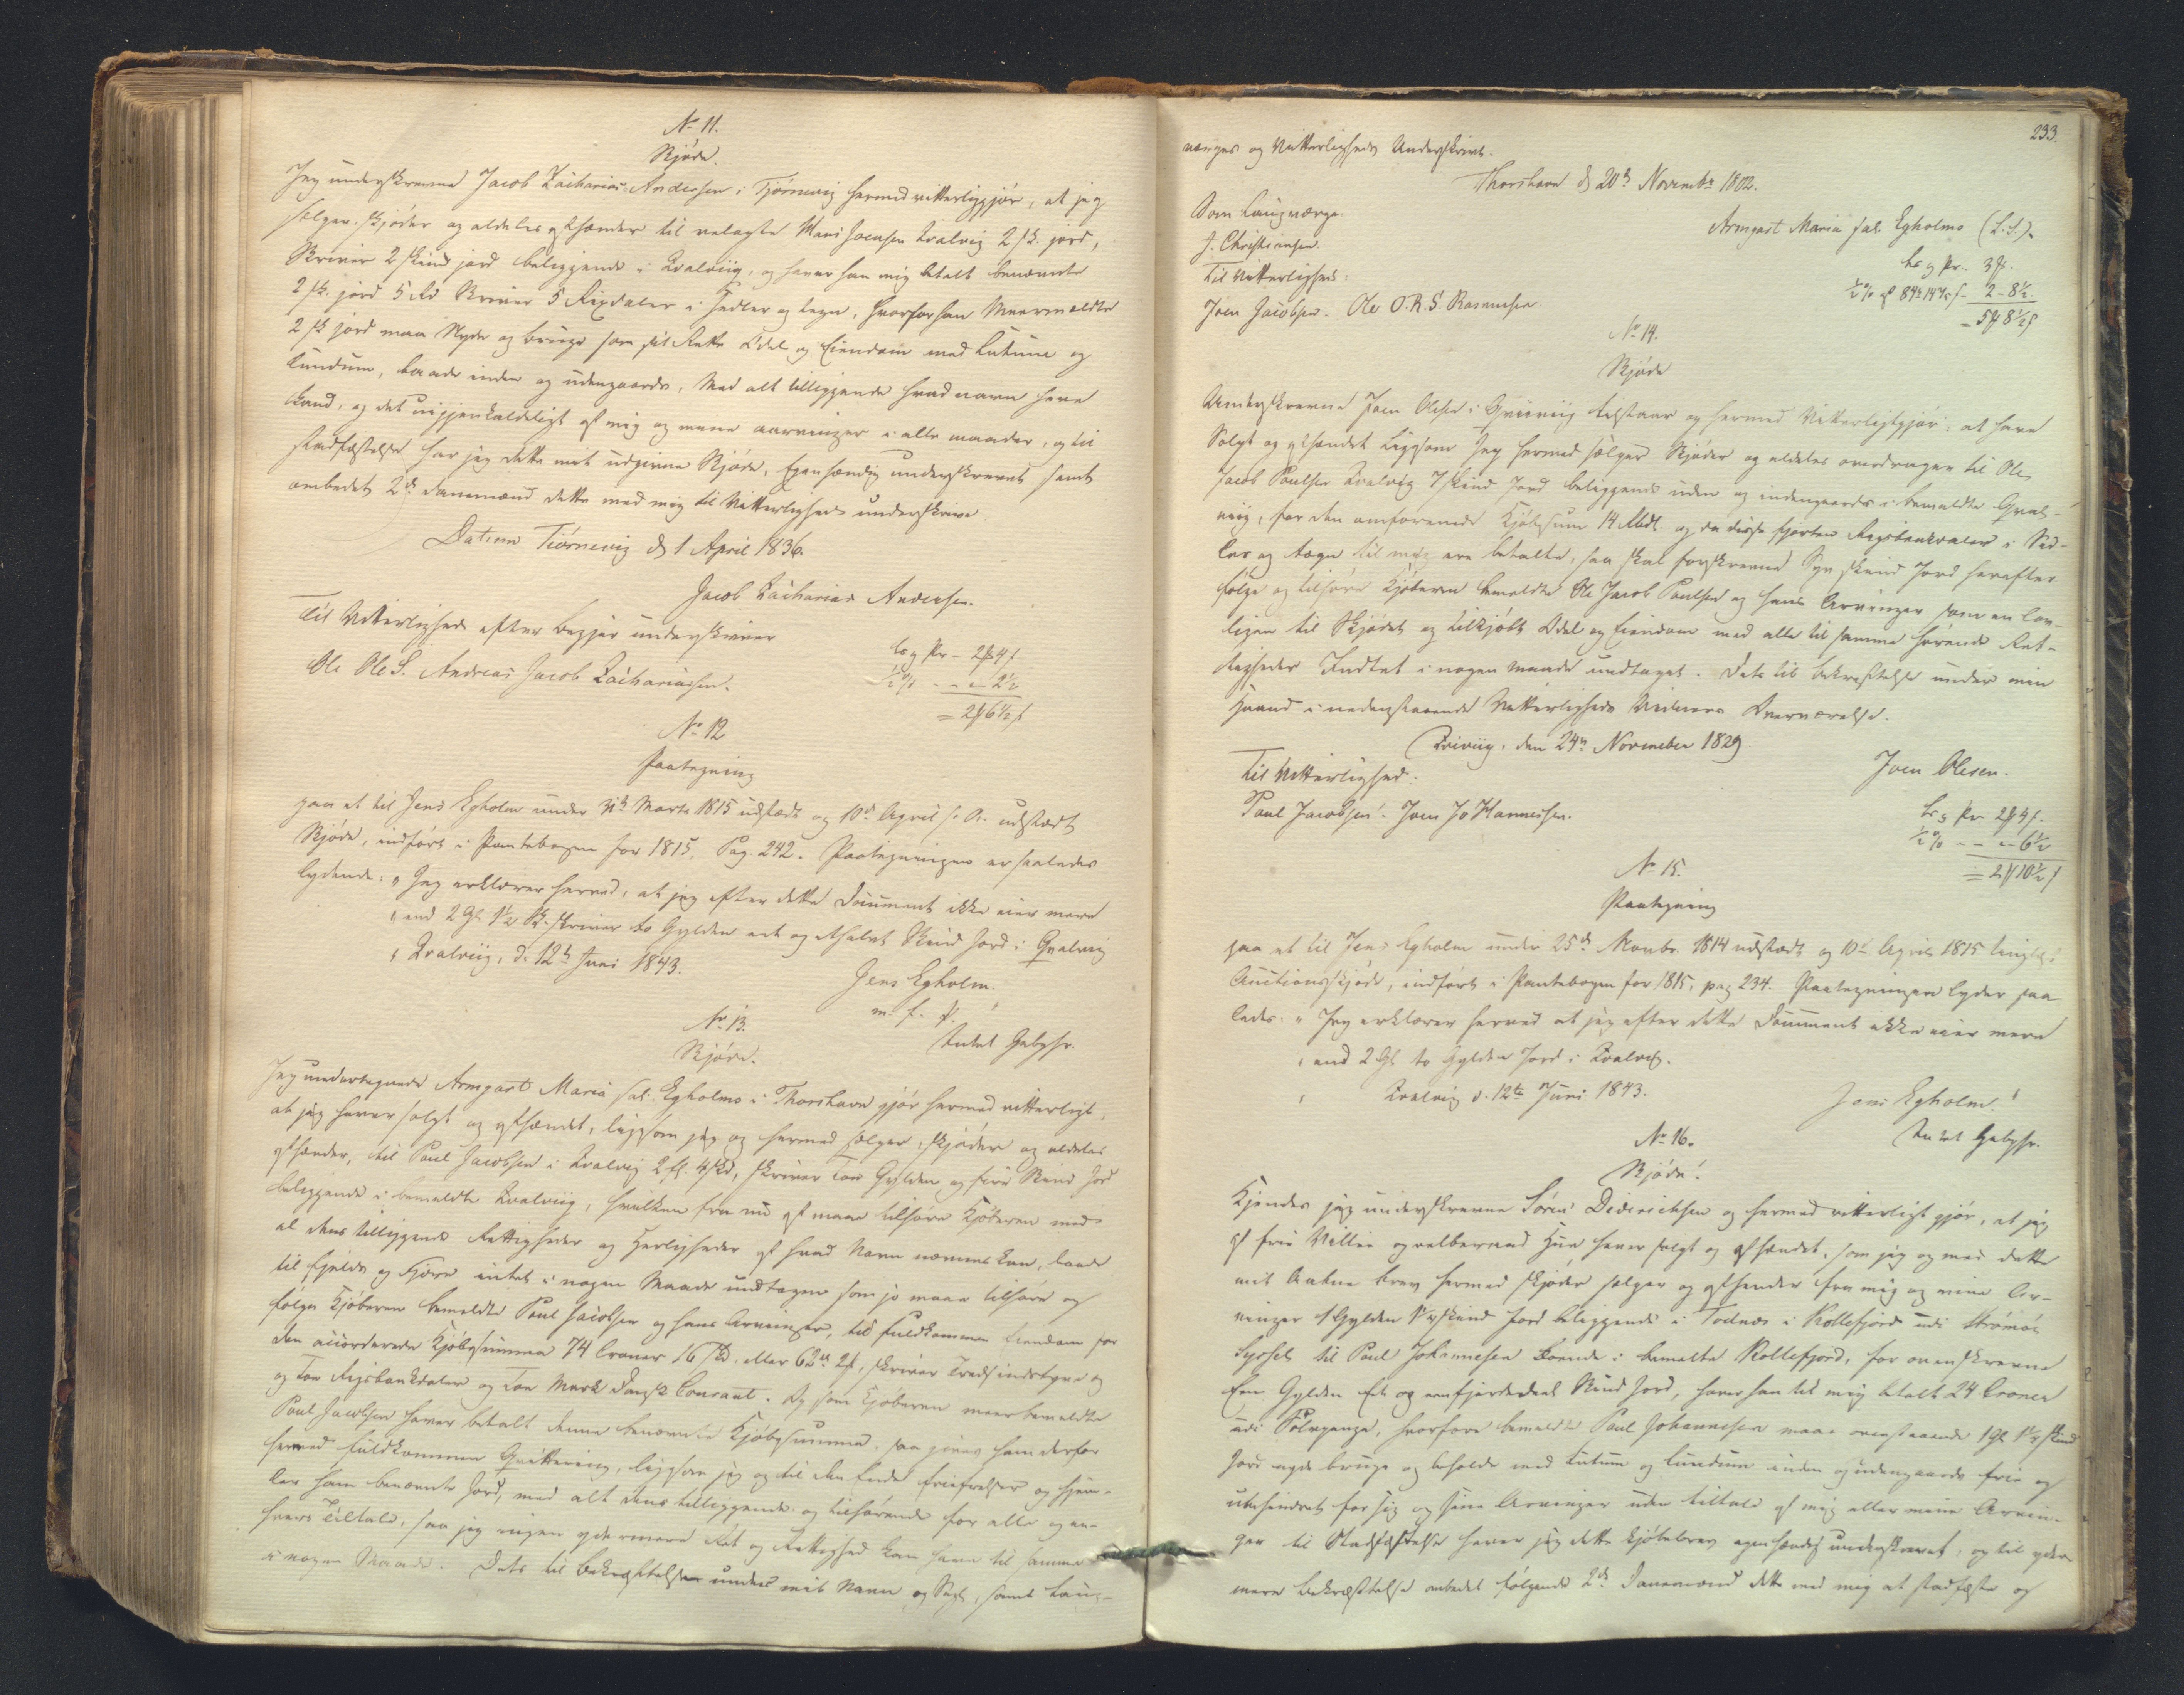 No 11.
Skjøde.
Jeg underskrevne Jacob Zacharias Andersen i Tjørnevig hermed vitterliggjør, at jeg
sælger, skjøder og aldeles afhænder til velagte Hans Joensen Qvalvig 2 sk. jord,
Skriver 2 skind jord beliggende i Qvalviig, og haver han mig betalt benævnte
2 sk. jord 5 Rd Skriver 5 Rixdaler i Sedler og tegn, hvorfor han Meermeldte
2 sk jord maa Nyde og bruge som sit Rette Odel og Eiendom med Lutum og
Lundum, baade inden og udengaards, Med alt tilliggende hvad navn have
kand, og det uigjenkaldeligt af mig og mine arvinger i alle maader, og til
stadfæstelse har jeg dette mit udgivne Skjøde, Egenhændig underskrevet samt
ombedet 2de Dannemænd dette med mig til Vitterlighed underskrive.
Datum Tiørnevig d. 1 April 1836.
Jacob Zacharias Andersen.
Til Vitterlighed efter begjær underskriver
Ole Ole S. Andreas Jacob Zachariasen.
Les og Pr - 2 4 s
½ % - - - 2½
= 2 6½ s
No 12
Paategning
paa et til Jens Egholm under 31te Marts 1815 udstædt og 10de April s. A. udstædt
Skjøde, indført i Pantebogen for 1815, Pag. 242. Paategningen er saaledes
lydende: "Jeg erklærer herved, at jeg efter dette Document ikke eier mere
"end 2 Gl. 1½ Sk. skriver to Gylden et og ethalvt Skind Jord i Qvalvig
"Qvalviig, d. 12te Juni 1843.
Jens Egholm.
m. f. p. "
Intet Gebyhr.
No 13.
Skjøde.
Jeg undertegnede Armgart Maria sal. Egholms i Thorshavn gjør hermed vitterligt,
at jeg haver solgt og afhændet, ligesom jeg og hermed sælger, skjøder og aldeles
afhænder, til Poul Jacobsen i Qvalvig 2 gl. 4 sk, skriver Toe Gylden og fire Skind Jord
beliggende i bemeldte Qvalviig, hvilken fra nu af maae tilhøre Kjøberen med
al dens tilliggende Rettigheder og Herligheder af hvad Navn nævnes kan, baade
til fjelds og Fjære intet i nogen Maade undtagen som jo maae tilhøre og
følge Kjøberen bemeldte Poul Jacobsen og hans Arvinger, til fuldkommen Eiendom for
den accorderede Kjøbesumma 74 Croner 16 sk. eller 62 rd 2 mk, skriver Tredsindstyve og
og Toe Rigsbankdaler og Toe Mark Dansk Courant. Og som Kjøberen meerbemeldte
Poul Jacobsen haver betalt denne benævnte Kjøbesumma, saa gives ham derfor
hermed fuldkommen Qvittering, ligesom jeg og til den Ende friefrelser og hjem-
ler ham benævnte Jord, med alt dens tilliggende og tilhørende for alle og en-
hvers Tiltale, saa jeg ingen ydermere Ret og Rettighed kan have til samme
i nogen Maade. Dets til Bekræftelse under mit Navn og Segl, samt Laug-
233.
værges og Vitterligheds Underskrivt.
Thorshavn d 20de Novembr 1802.
Som Laugværge.
J. Christiansen.
Armgart Maria sal. Egholms (L. S.).
Til Vitterlighed:
Joen Jacobsen. Ole O. R. S. Rasmusen
Les og Pr. 3
½ % af 84 14 s - 2 - 8½
= 5 8½ s
No 14.
Skjøde
Underskrevne Joen Olesen i Qviviig tilstaar og hermed Vitterligtgjør: at have
Solgt og afhændet Ligesom Jeg hermed sælger Skjøder og aldeles overdrager til Ole
Jacob Poulsen Qvalvig 7 skind Jord beliggende uden og indengaards i bemeldte Qval-
viig, for den omforenede Kjøbesum 14 Rbdl. og da disse fjorten Rigsbankdaler i Sed-
ler og tegn til mig ere betalte, saa skal forskrevne Syv skind Jord herefter
følge og tilhøre Kjøberen bemeldte Ole Jacob Poulsen og hans Arvinger som en lov-
ligen til Skjødet og tilkjøbt Odel og Eiendom med alle til samme hørende Ret-
tigheder Indtet i nogen maade undtaget. Dets til bekræftelse under min
Haand i nedenstaaende Vitterligheds Vidners Overværelse.
Qviviig, den 24de November 1829.
Joen Olesen.
Til Vitterlighed:
Poul Jacobsen. Joen Johannesen.
Les og Pr 2 4 s.
½ % - - - 6½
= 2 10½ s
No 15.
Paategning
paa et til Jens Egholm under 25de Novbr. 1814 udstædt og 10de April 1815 tinglyst
Auctionsskjøde, indført i Pantebogen for 1815, pag 234. Paategningen lyder saa-
ledes: "Jeg erklærer herved at jeg efter dette Document ikke eier mere
"end 2 Gl. to Gylden Jord i Qvalvig.
" Qvalvig d. 12te Juni 1843.
Jens Egholm."
Intet Gebyhr.
No 16.
Skjøde.
Kjendes jeg underskrevne Sören Dideriksen og hermed vitterligt gjør, at jeg
af frie Villie og velberaad Hue haver solgt og afhændet, som jeg og med dette
mit Aabne brev hermed skjøder sælger og afhender fra mig og mine Ar-
vinger 1 Gylden 1¼ skind Jord beliggende i Todnes i Kollefjord udi Strømøe
Syssel til Poul Johannesen Boende i bemelte Kollefjord, for ovenskrevne
Een Gylden Et og eenfjerdedeel Skind Jord, haver han til mig betalt 24 Croner
udi Sølvpenge, hvorfore bemeldte Poul Johannesen maae ovenstaaende 1 gl 1¼ skind
Jord nyde bruge og beholde med Lutum og Lundum inden og udengaards frie og
ubehindret for sig og sine Arvinger uden tiltale af mig eller mine Arvin-
ger til Stadfæstelse haver jeg dette kjøbebrev egenhændig underskrevet, og til yder-
mere bekræftelse ombedet følgende 2de Dannemænd dette med mig at stadfæste og